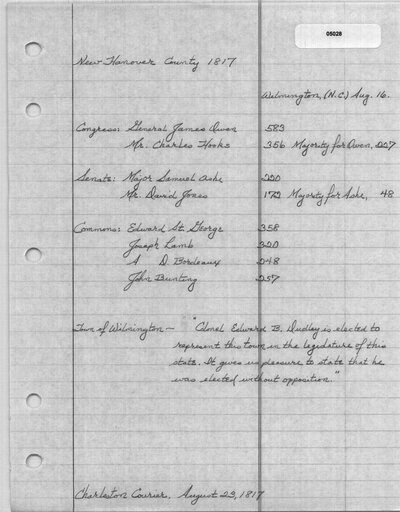 05028
New Hanover County 1817
Wilmington, (N.C.) Aug. 16.
Congress: General James Owen 583
Mr. Charles Hooks 356 Majority for Owen, 227
Senate: Major Samuel Ashe 220
Mr. David Jones 172 Majority for Ashe, 48
Commons: Edward St. George 358
Joseph Lamb 320
A D. Bordeaux 248
John Bunting 257
Town of Wilmington — "Colonel Edward B. Dudley is elected to
represent this town in the legislature of this
state. It gives us pleasure to state that he
was elected without opposition."
Charleston Courier, August 23, 1817